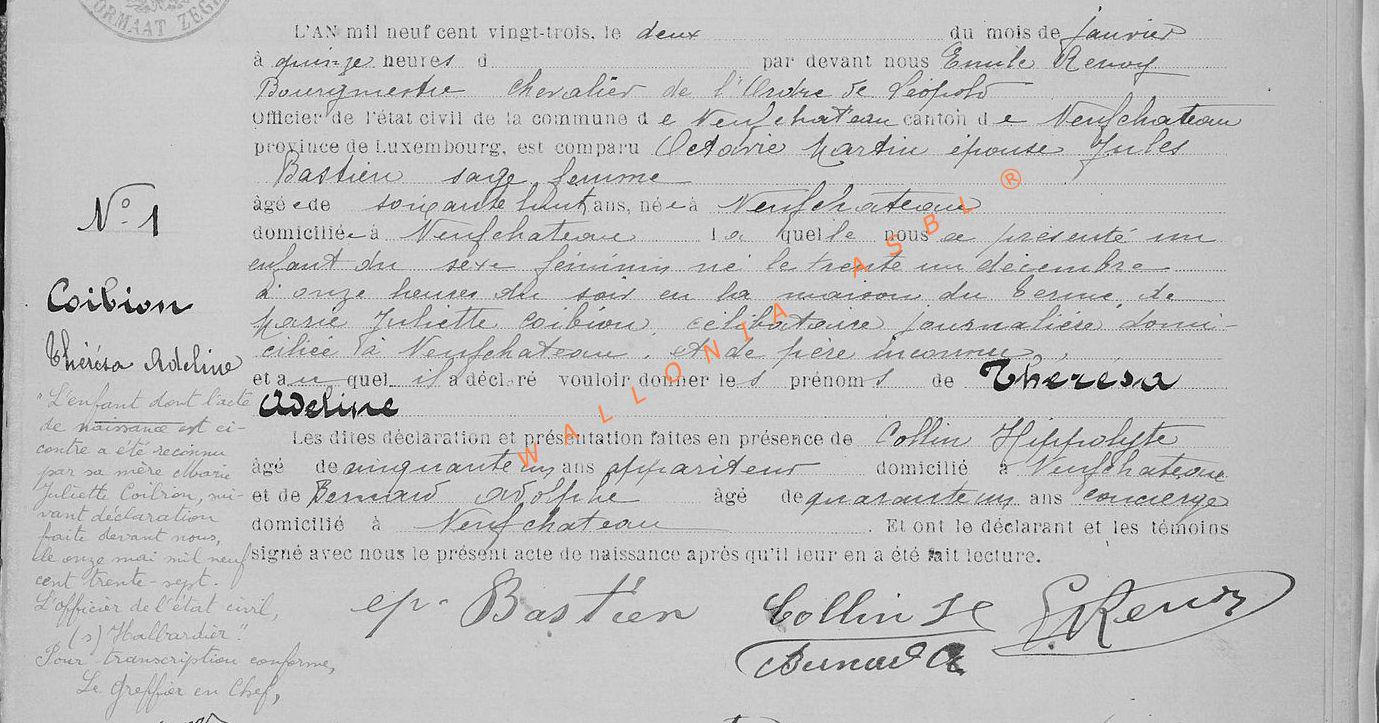 ORMAAT ZEG
L'AN mil neuf cent vingt-trois, le deux du mois de janvier
à quinze heures d par devant nous Emile Renoy
Bourgmestre Chevalier de l'Ordre de Léopold
Officier de l'état civil de la commune de Neufchateau canton de Neufchateau
province de Luxembourg, est comparu Octavie Martin épouse Jules
Bastien sage femme
âgée de soixante huit ans, née à Neufchateau
domiciliée à Neufchateau la quelle nous a présenté un
enfant du sexe féminin né le trente un décembre
à onze heures du soir en la maison du Terme, de
Marie Juliette Coibion, célibataire journalière domi-
ciliée à Neufchateau. Et de père inconnu,
et au quel il a déclaré vouloir donner les prénoms de Thérèsa
Adeline
Les dites déclaration et présentation faites en présence de Collin Hippolyte
âgé de cinquante un ans appariteur domicilié à Neufchateau
et de Bernard Adolphe âgé de quarante un ans concierge
domicilié à Neufchateau. Et ont le déclarant et les témoins
signé avec nous le présent acte de naissance après qu'il leur en a été fait lecture.
ep. Bastien Collin H E. Renoy
Bernard A
N° 1
Coibion
Thérèsa Adeline
"L'enfant dont l'acte
de naissance est ci-
contre a été reconnu
par sa mère Marie
Juliette Coibion, sui-
vant déclaration
faite devant nous,
le onze mai mil neuf
cent trente-sept.
L'officier de l'état civil,
(s) Halbardier".
Pour transcription conforme,
Le Greffier en Chef,
WALLONIA ASBL ®